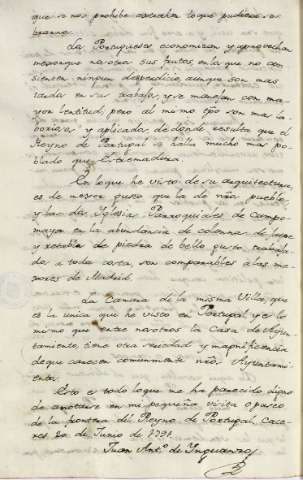 que a nos prohibe
Los Portugueses economizan y aprovechan
mejor que nosotros sus frutos, en los que no con-
sienten ningun desperdicio, aunque son mas
tardos en su trabajo, y se manejan con ma-
yor lentitud, pero al mismo tpo son mas la-
boriosos y aplicados, de donde resulta que el
Reyno de Portugal se halla mucho mas po-
blado que Extremadura.
En lo que he visto de su arquitectura,
es de mejor gusto que la de nros pueblos,
y las dos Iglesias Parroquiales de Campo-
mayor en la abundancia de colunnas de
y de piedra de bello gusto trabaja-
das a toda costa, son comparables a las me-
jores de Madrid.
La Camara de la misma Villa, que
es la unica que he visto en Portugal y es lo
mismo que entre nosotros la Casa de Ayun-
tamiento, tiene otra seriedad y magnificencia
de que carecen comunmente nros Ayuntami-
entos.
Esto es todo lo que me ha parecido digno
de anotarse en mi pequeña visita o paseo
de la frontera del Reyno de Portugal. Cace-
res 20 de Junio de 1791.
Juan Antº. de Inguanzo